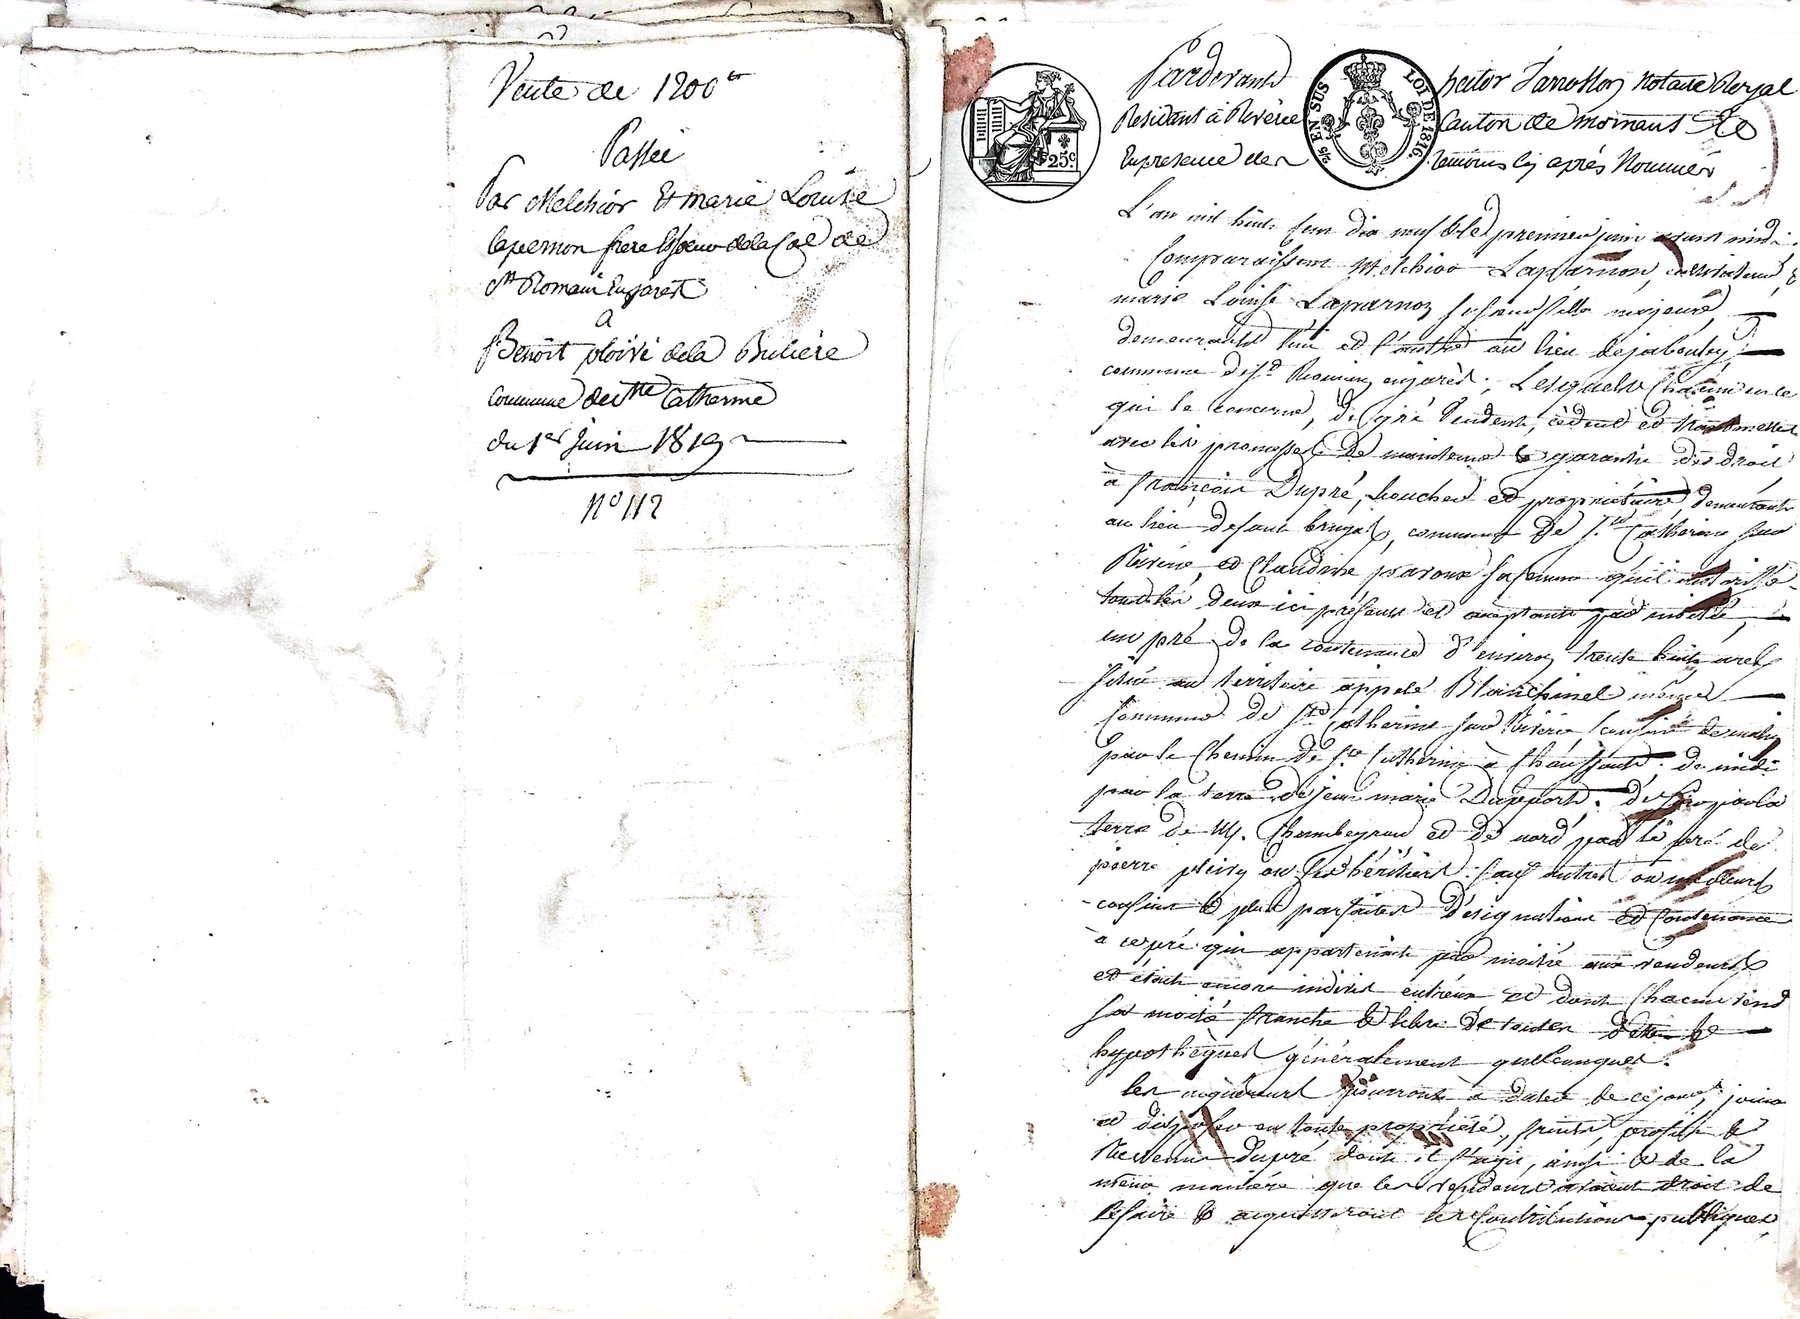 Vente de 1200 tt
Passée
Par Melchior Et marie Louise
laparnon frere Et soeur de la Cal de
St Romain En jarest
a
Benoit ploivi dela Buliere
Commune de Ste Catherine
du 1er Juin 1819
No 112
Pardevant hector Notaire Royal
Résidant à Riverie Canton de mornant
En presence des témoins cy après Nommés
25c.
5/6 EN SUS
LOI DE 1816.
L'an mil huit cent dix neuf & le premier juin avant midi.
Comparaissent Melchior Laparnon, &
marie Louise Laparnon sa soeur fille majeure,
demeurants l'un et l'autre au lieu de jabouley,
commune de St Romain en jarest; Lesquels Chacun en ce
qui le concerne, de gré Vendent, cèdent et transmettent
avec les promesses de maintenue & garantie de droit
à françois Dupré, boucher et propriétaire, demeurant
au lieu de commune de Ste Catherine sur
Riverie, et Claudine sa femme qu'il autorise
tous les deux ici présents et acceptants par moitié,
un pré de la contenance d'environ trente huit ares
situé au territoire appelé Blanchinel même
Commune de Ste Catherine sur Riverie de matin
par le Chemin de Ste Catherine à Chaussant; de midi
par la terre de jean marie Dupeport; de soir par la
terre de M. Chambeyron et de nord par le pré de
pierre pleivy ou ses héritiers: sauf autres ou meilleurs
confins & plus parfaites désignations et Contenance
à ce pré qui appartenait par moitié aux vendeurs
et était encore indivis entr'eux et dont Chacun vend
sa moitié franche & libre de toutes dettes &
hypothèques généralement quelconques.
Les acquéreurs pourront à dater de ce jour, jouir
et disposer en toute propriété, fruits, profits &
Revenus du pré dont il s'agit, ainsi & de la
même manière que les vendeurs avaient droit de
le faire & acquitteront les Contributions publiques,